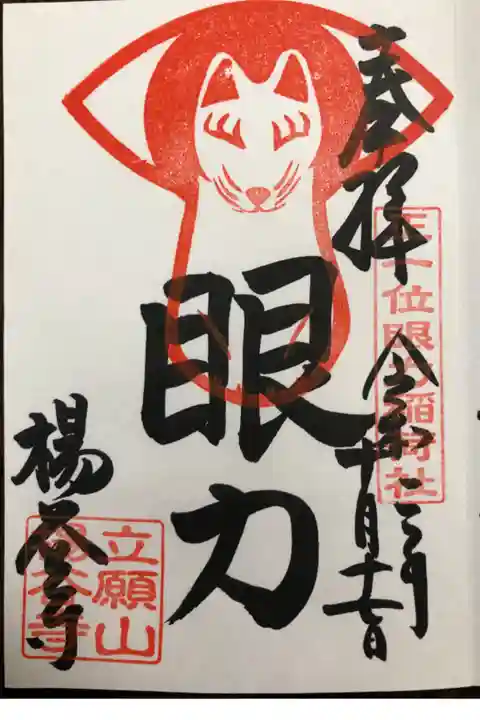 奉拝
正一位眼力稲荷社
令和
月十七日
眼力
楊谷寺
立願山
楊谷寺